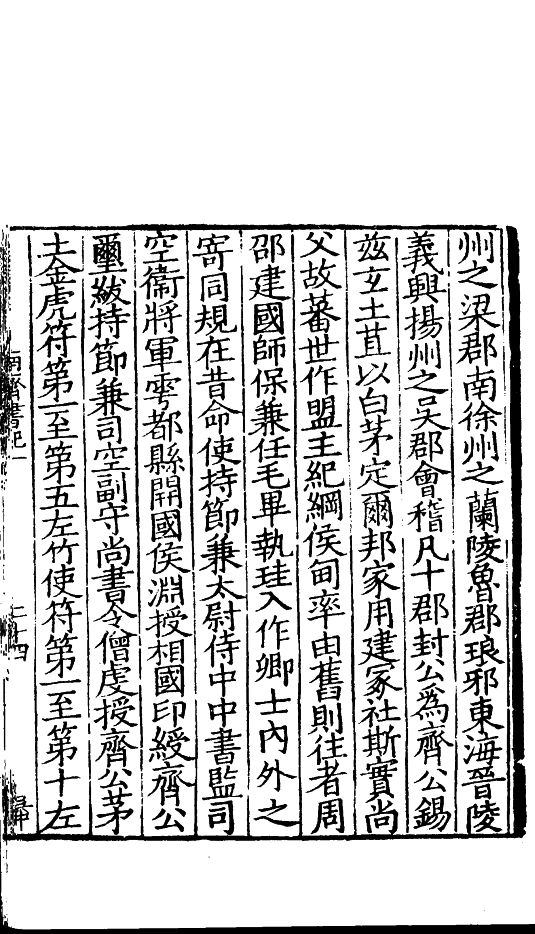 州之梁郡南徐州之蘭陵魯郡琅邪東海晉陵
義興揚州之吳郡會稽凡十郡封公爲齊公錫
茲玄土苴以白茅定爾邦家用建冢社斯實尚
父故蕃世作盟主紀綱侯甸率由舊則往者周
邵建國師保兼任毛畢執珪入作卿士內外之
寄同規在昔命使持節兼太尉侍中中書監司
空衞將軍雩都縣開國侯淵授相國印綬齊公
璽紱持節兼司空副守尚書令僧虔授齊公茅
土金虎符第一至第五左竹使符第一至第十左
南齊書紀一
二十四